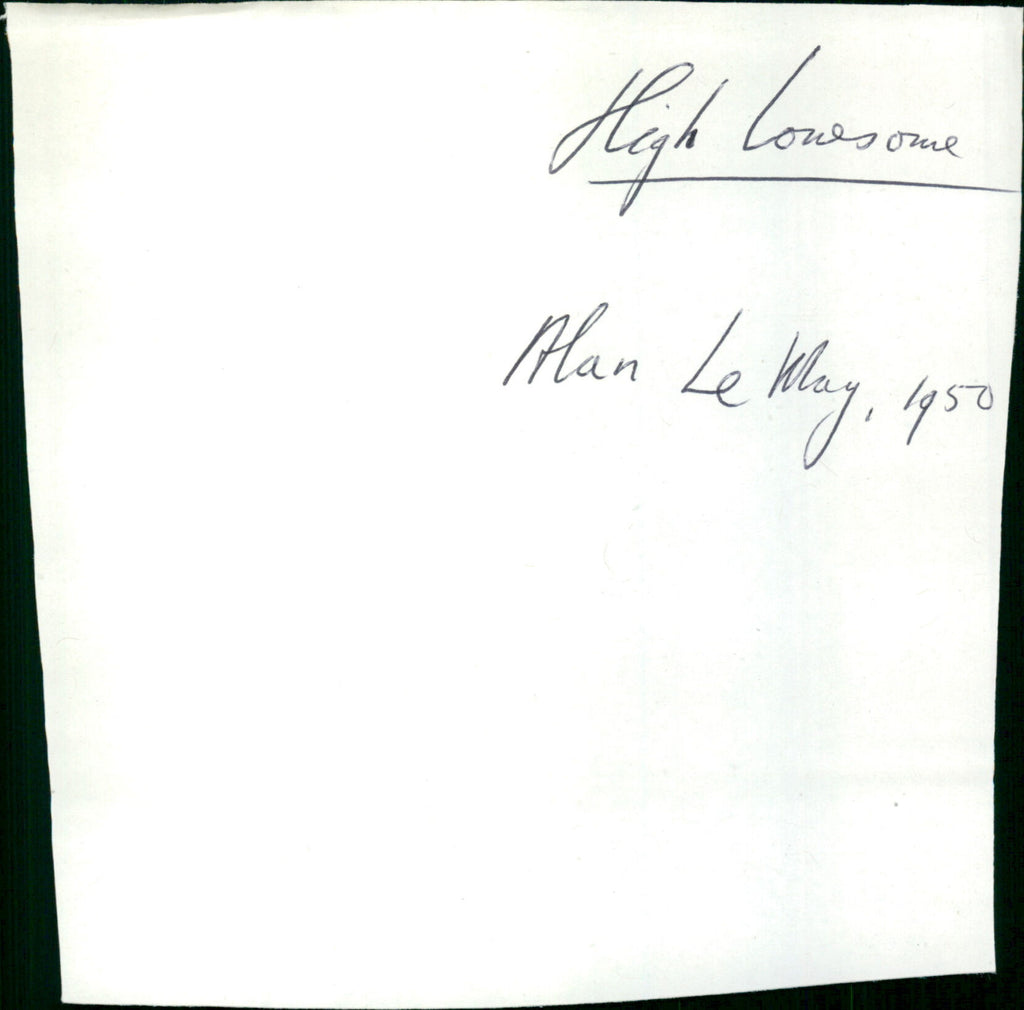 High Lonesome
Alan Le May, 1950